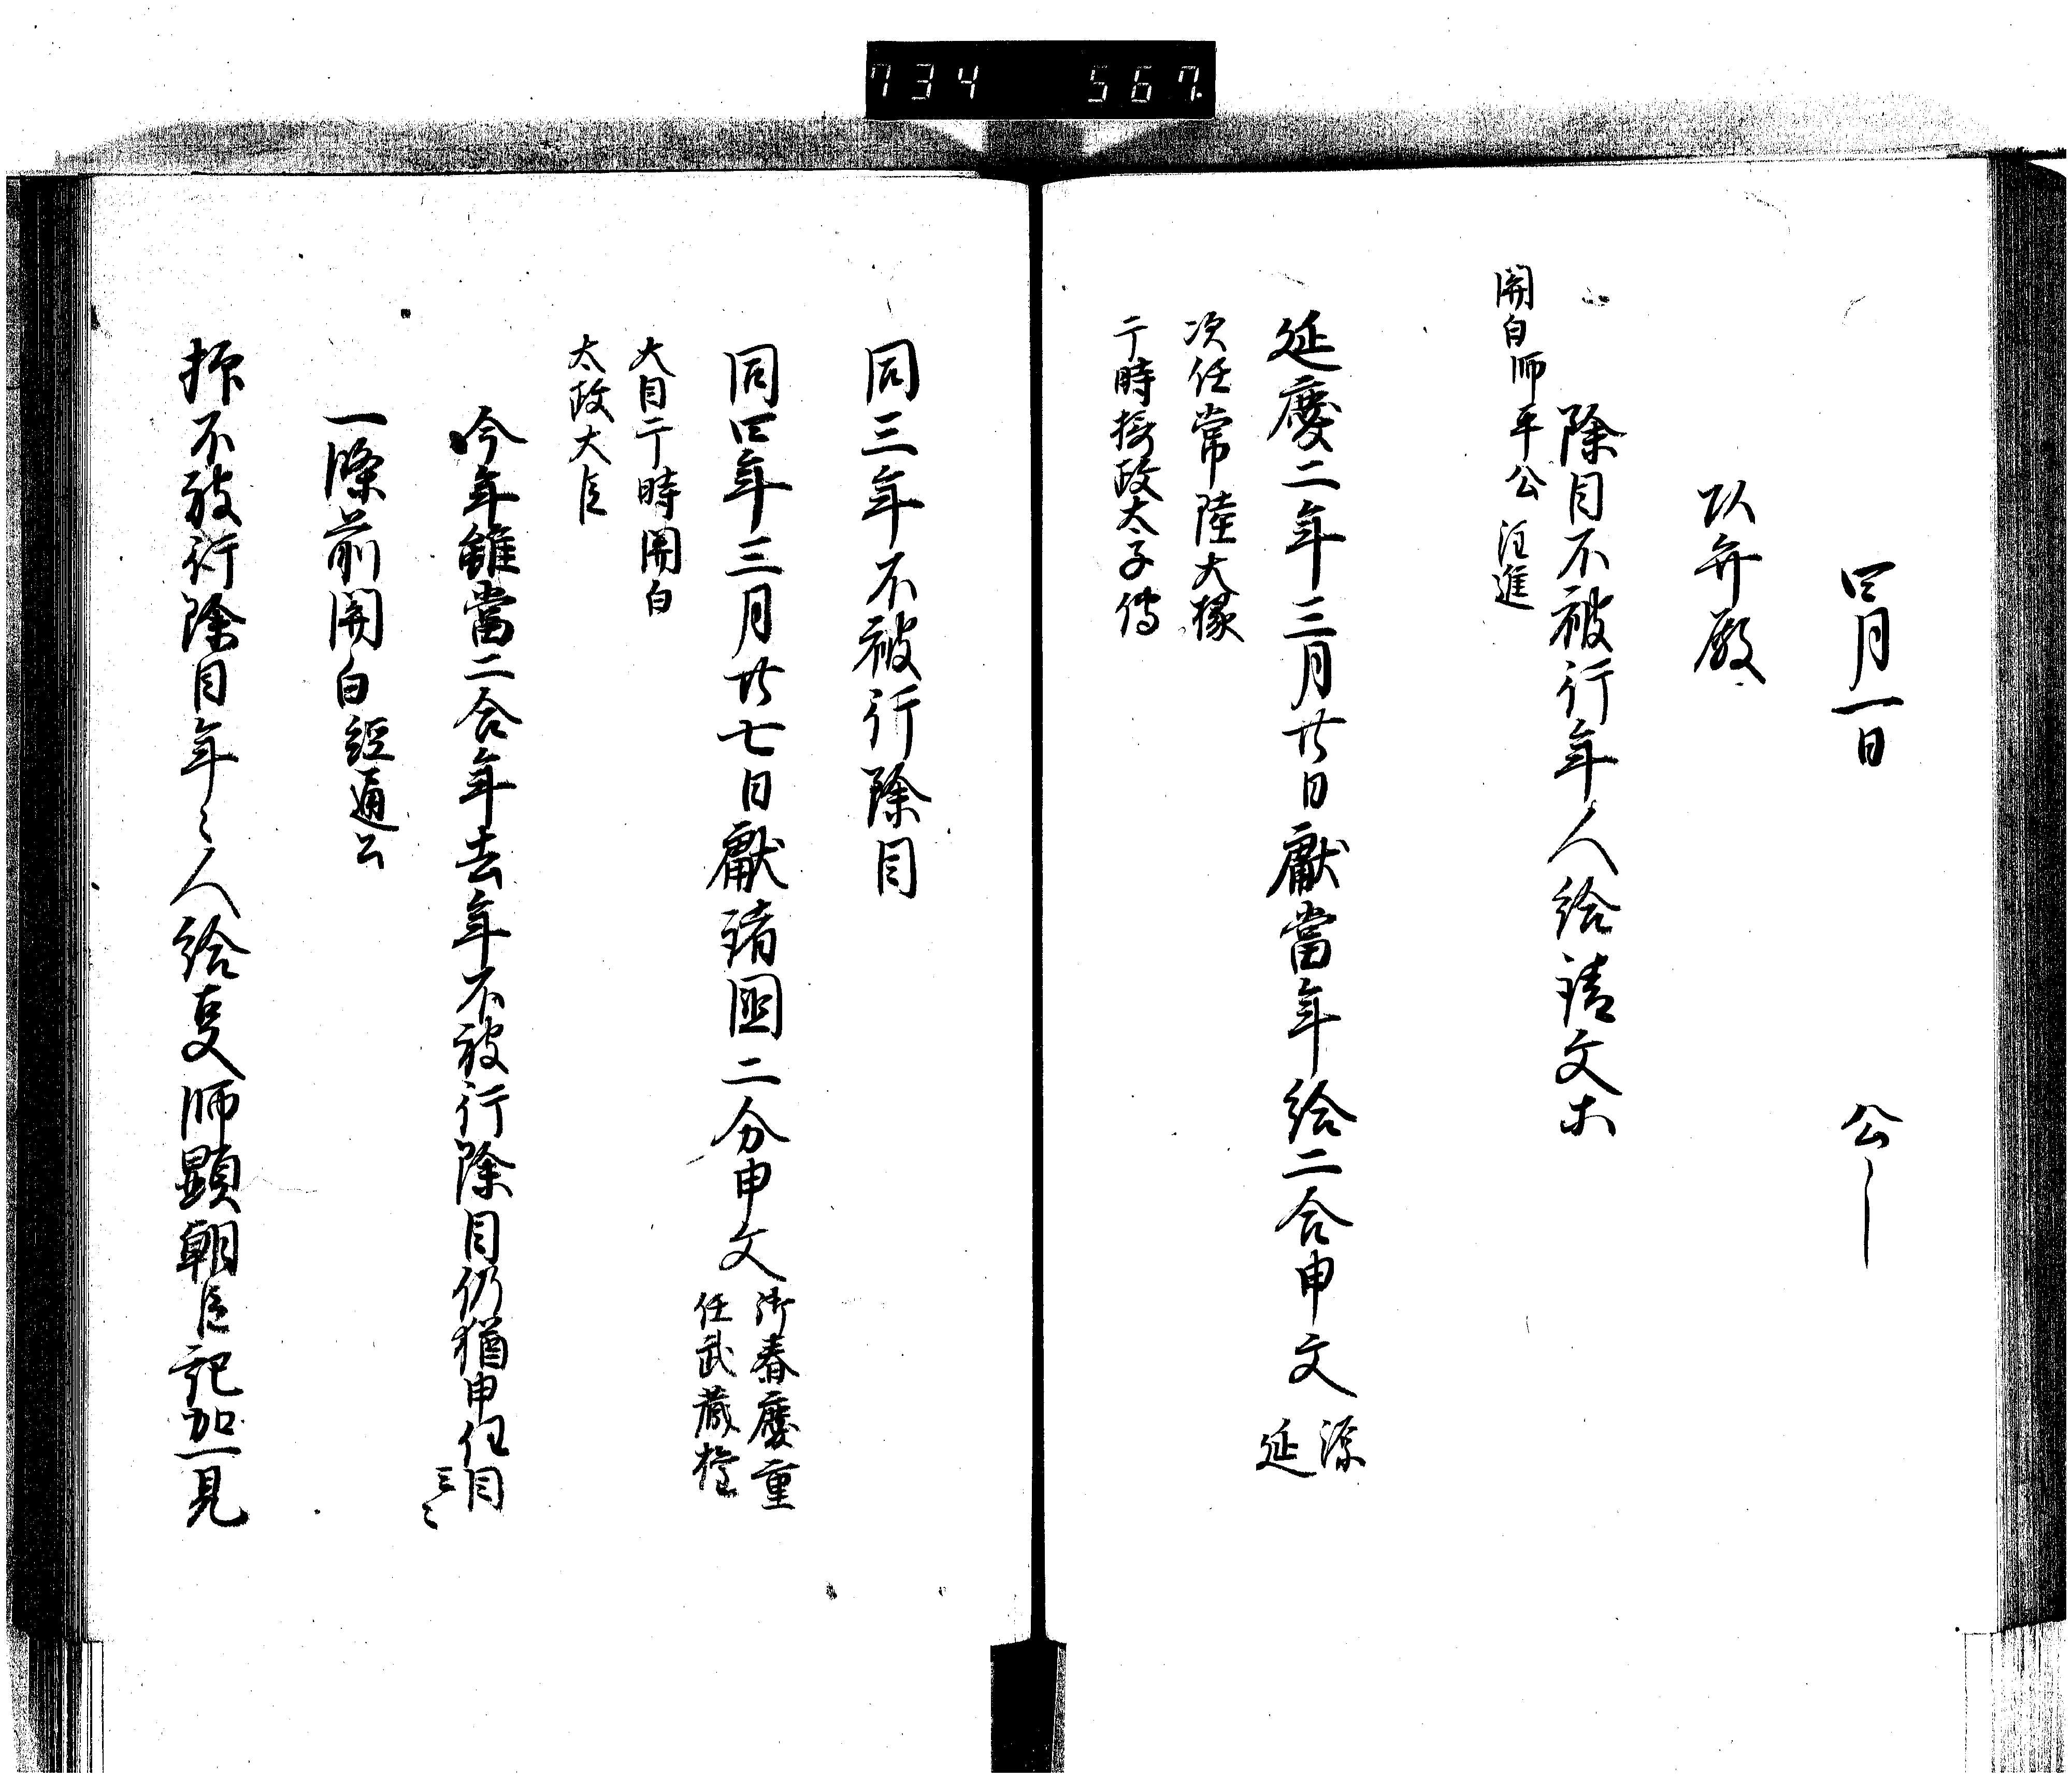 734 567
四月一日 公
以弁殿
除目不被行年人給請文等
関白師平公注進
延慶二年三月廿日献當年給二合申文 源
延
次任常陸大掾
于時摂政太子傅
同三年不被行除目
同四年三月廿七日献諸国二分申文 御春慶重
任武蔵権
大目于時関白
太政大臣
今年雖當二合年去年不被行除目仍猶申任目
云々
一條前関白経通公
抑不被行除目年々人給事師顕朝臣記加一見